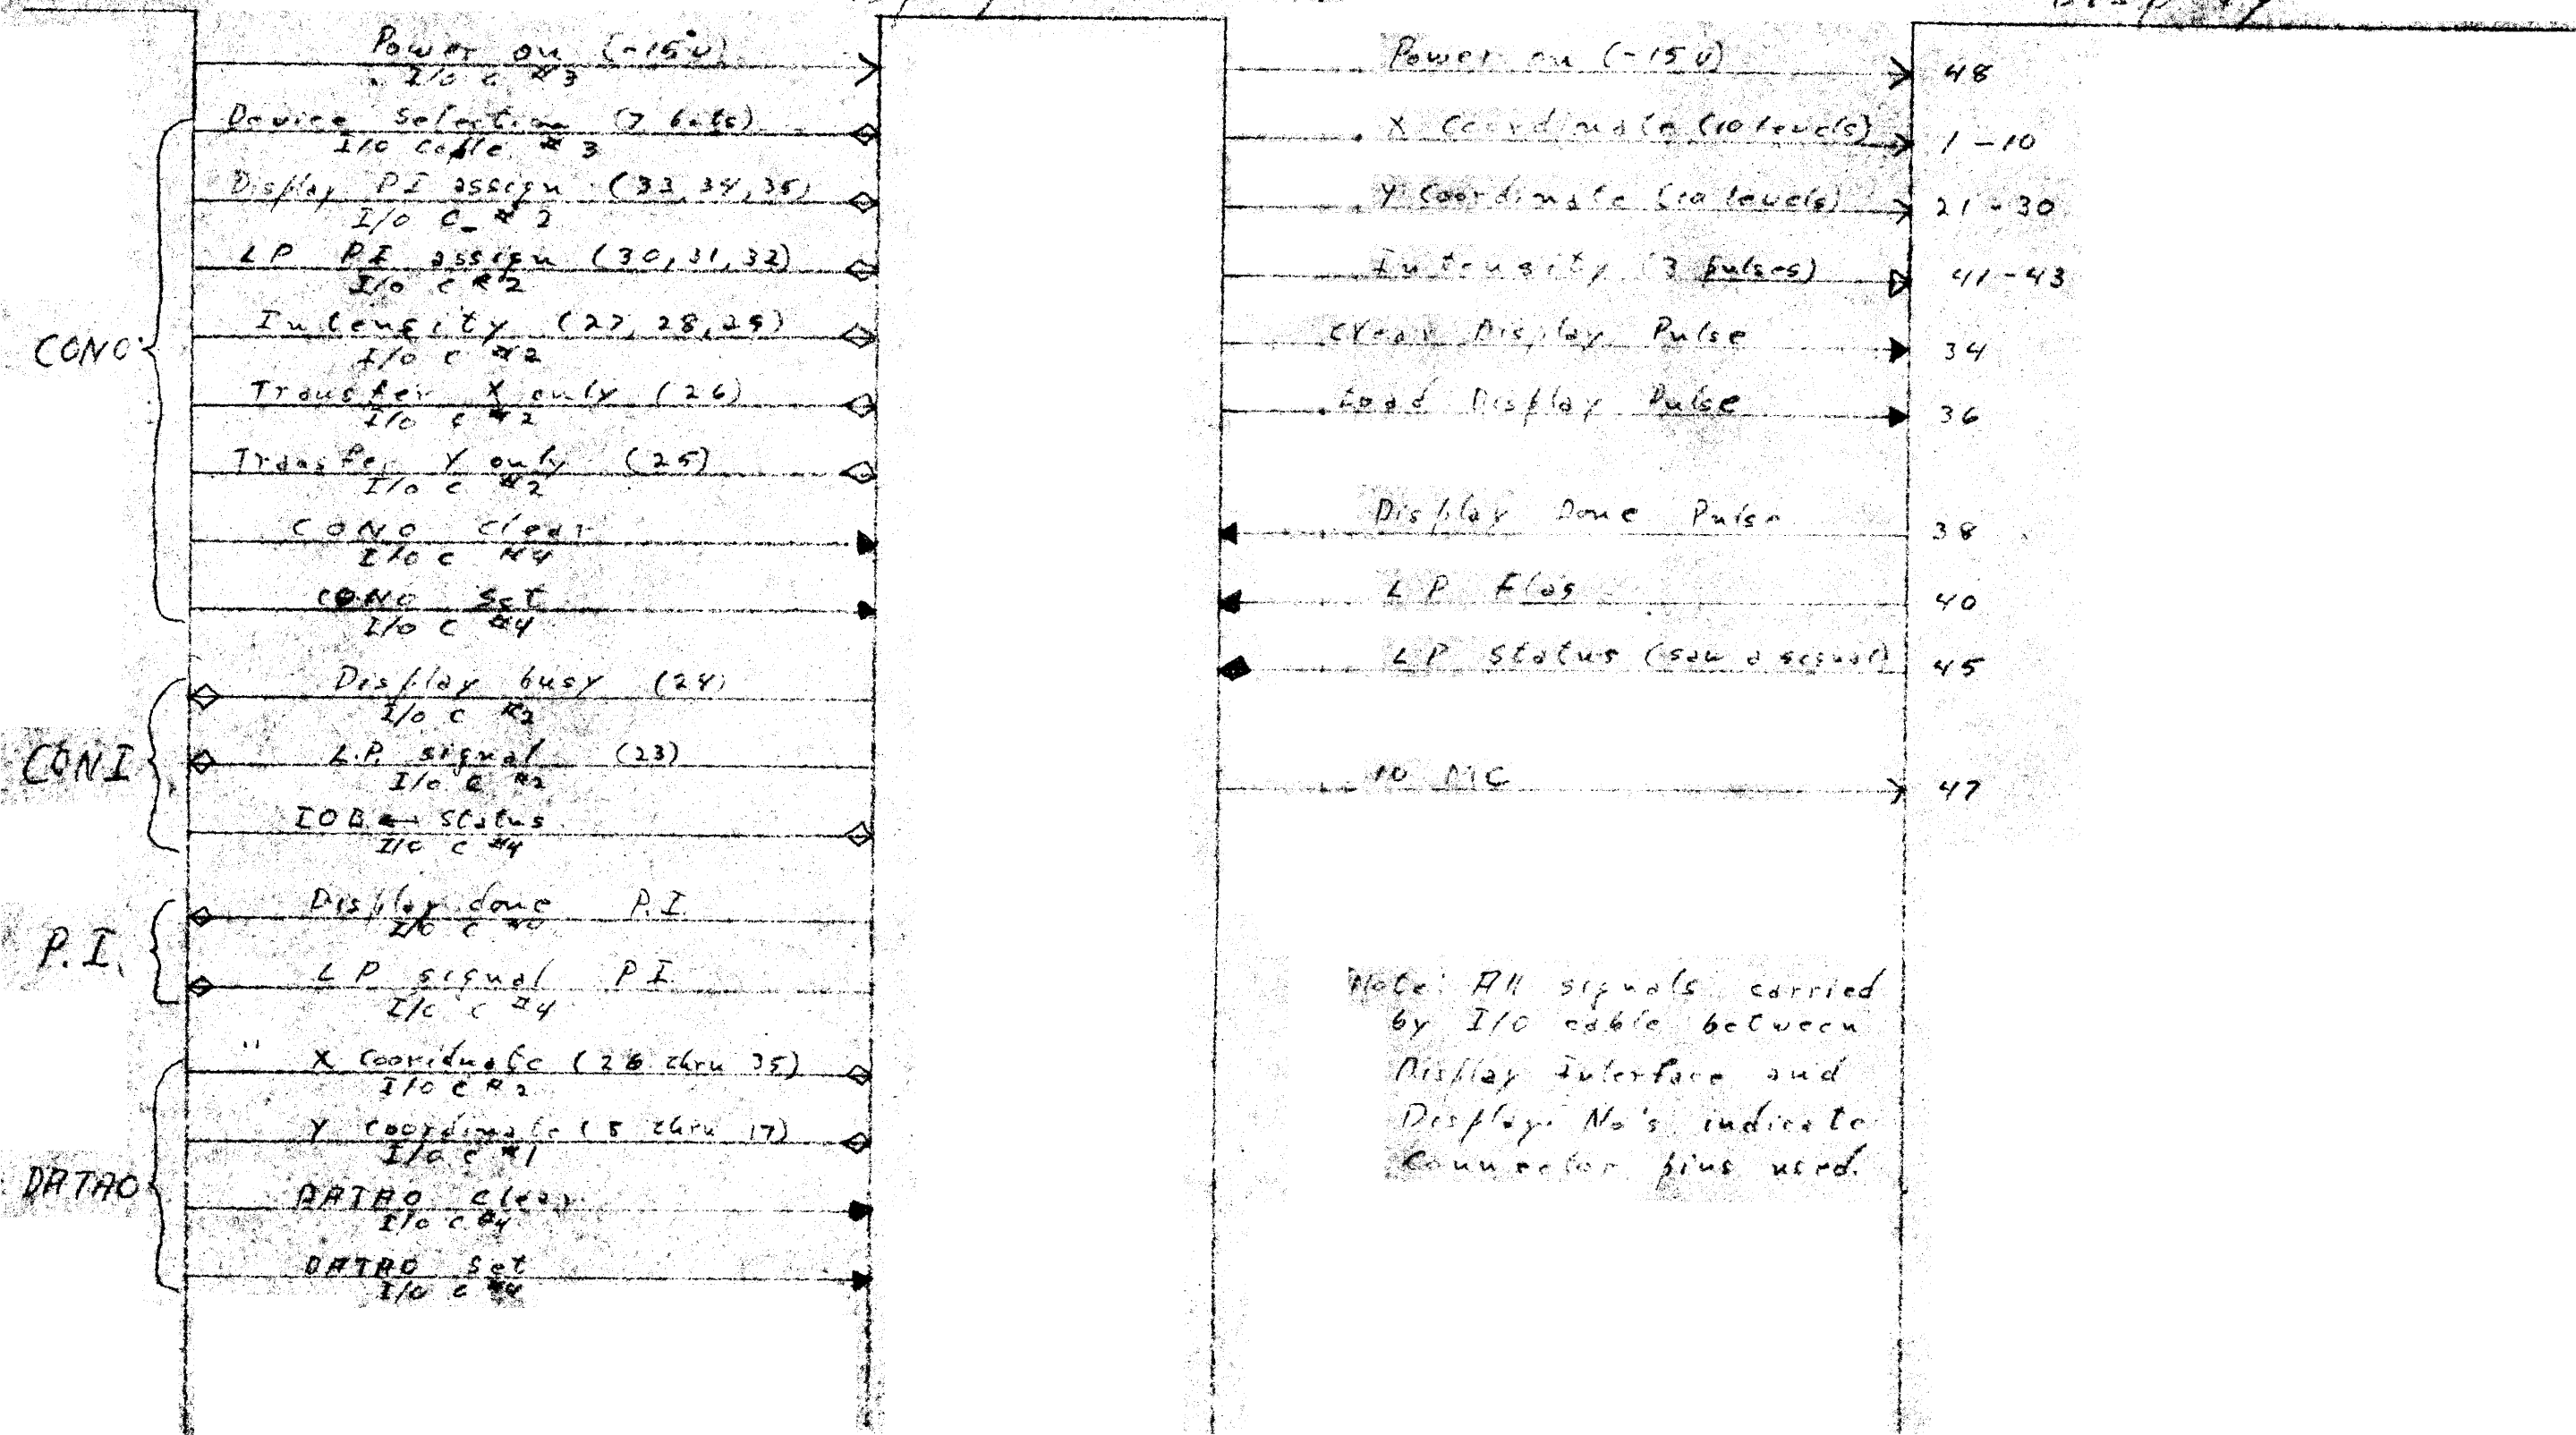 Display
Power on (-15v)
I/O C #3
Device Selection (7 bits)
I/O Cable #3
Display PI assign (33,34,35)
I/O C #2
LP PI assign (30,31,32)
I/O C #2
CONO
Intensity (27,28,29)
I/O C #2
Transfer X only (26)
I/O C #2
Transfer Y only (25)
I/O C #2
CONO clear
I/O C #4
CONO Set
I/O C #4
CONI
Display busy (24)
I/O C #2
L.P. signal (23)
I/O C #2
IOB ← Status
I/O C #4
P.I.
Display done P.I.
I/O C
LP signal PI
I/O C #4
DATAO
X Cooridnate (26 thru 35)
I/O C #2
Y Coordinate (8 thru 17)
I/O C #1
DATAO clear
I/O C #4
DATAO Set
I/O C #4
Power on (-15v) 48
X Coordinate (10 levels) 1-10
Y Coordinate (10 levels) 21-30
Intensity (3 pulses) 41-43
Clear Display Pulse 34
Load Display Pulse 36
Display Done Pulse 38
LP Flag 40
LP Status (saw a signal) 45
10 MC 47
Note: All signals carried
by I/O cable between
Display Interface and
Display. No's indicate
Connector pins used.